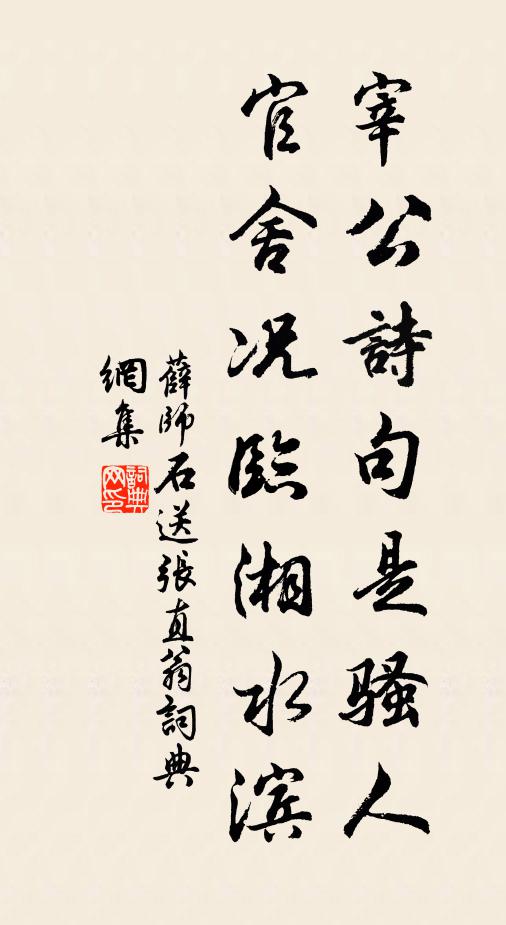 宰公詩句是骚人
官舍况臨湘水滨
薛師石送張直翁詞典
網集
詞典
网印